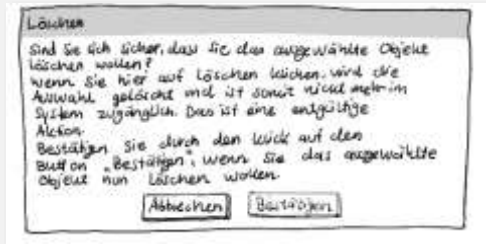 Löschen
Sind Sie sich sicher, dass Sie das ausgewählte Objekt
löschen wollen?
Wenn Sie hier auf Löschen klicken, wird die
Auswahl gelöscht und ist somit nicht mehr im
System zugänglich. Das ist eine entgültige
Aktion.
Bestätigen Sie durch den Klick auf den
Button „Bestätigen", wenn Sie das ausgewählte
Objekt nun löschen wollen.
Abbrechen Bestätigen